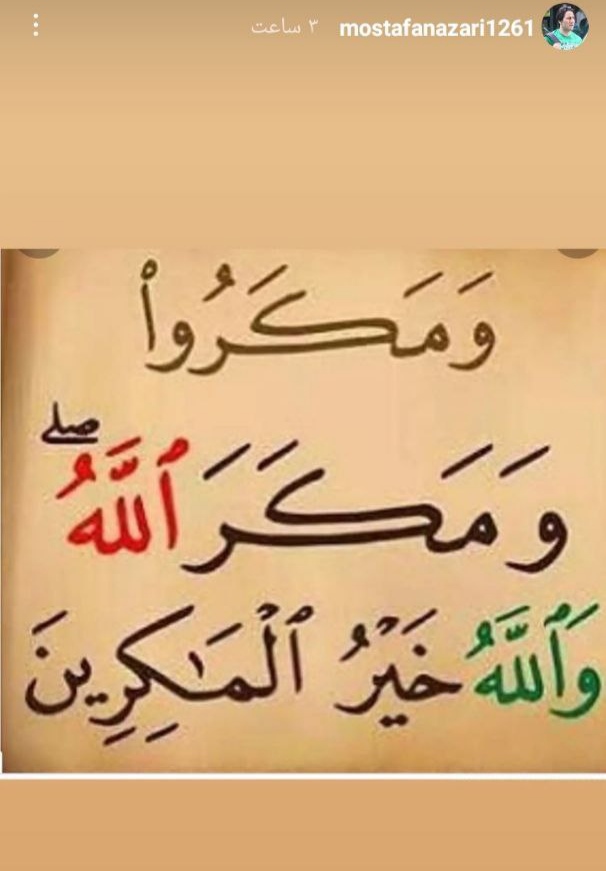 mostafanazari1261 ۳ ساعت
وَمَكَرُوا۟
وَمَكَرَ ٱللَّهُ ۖ
وَٱللَّهُ خَيْرُ ٱلْمَـٰكِرِينَ